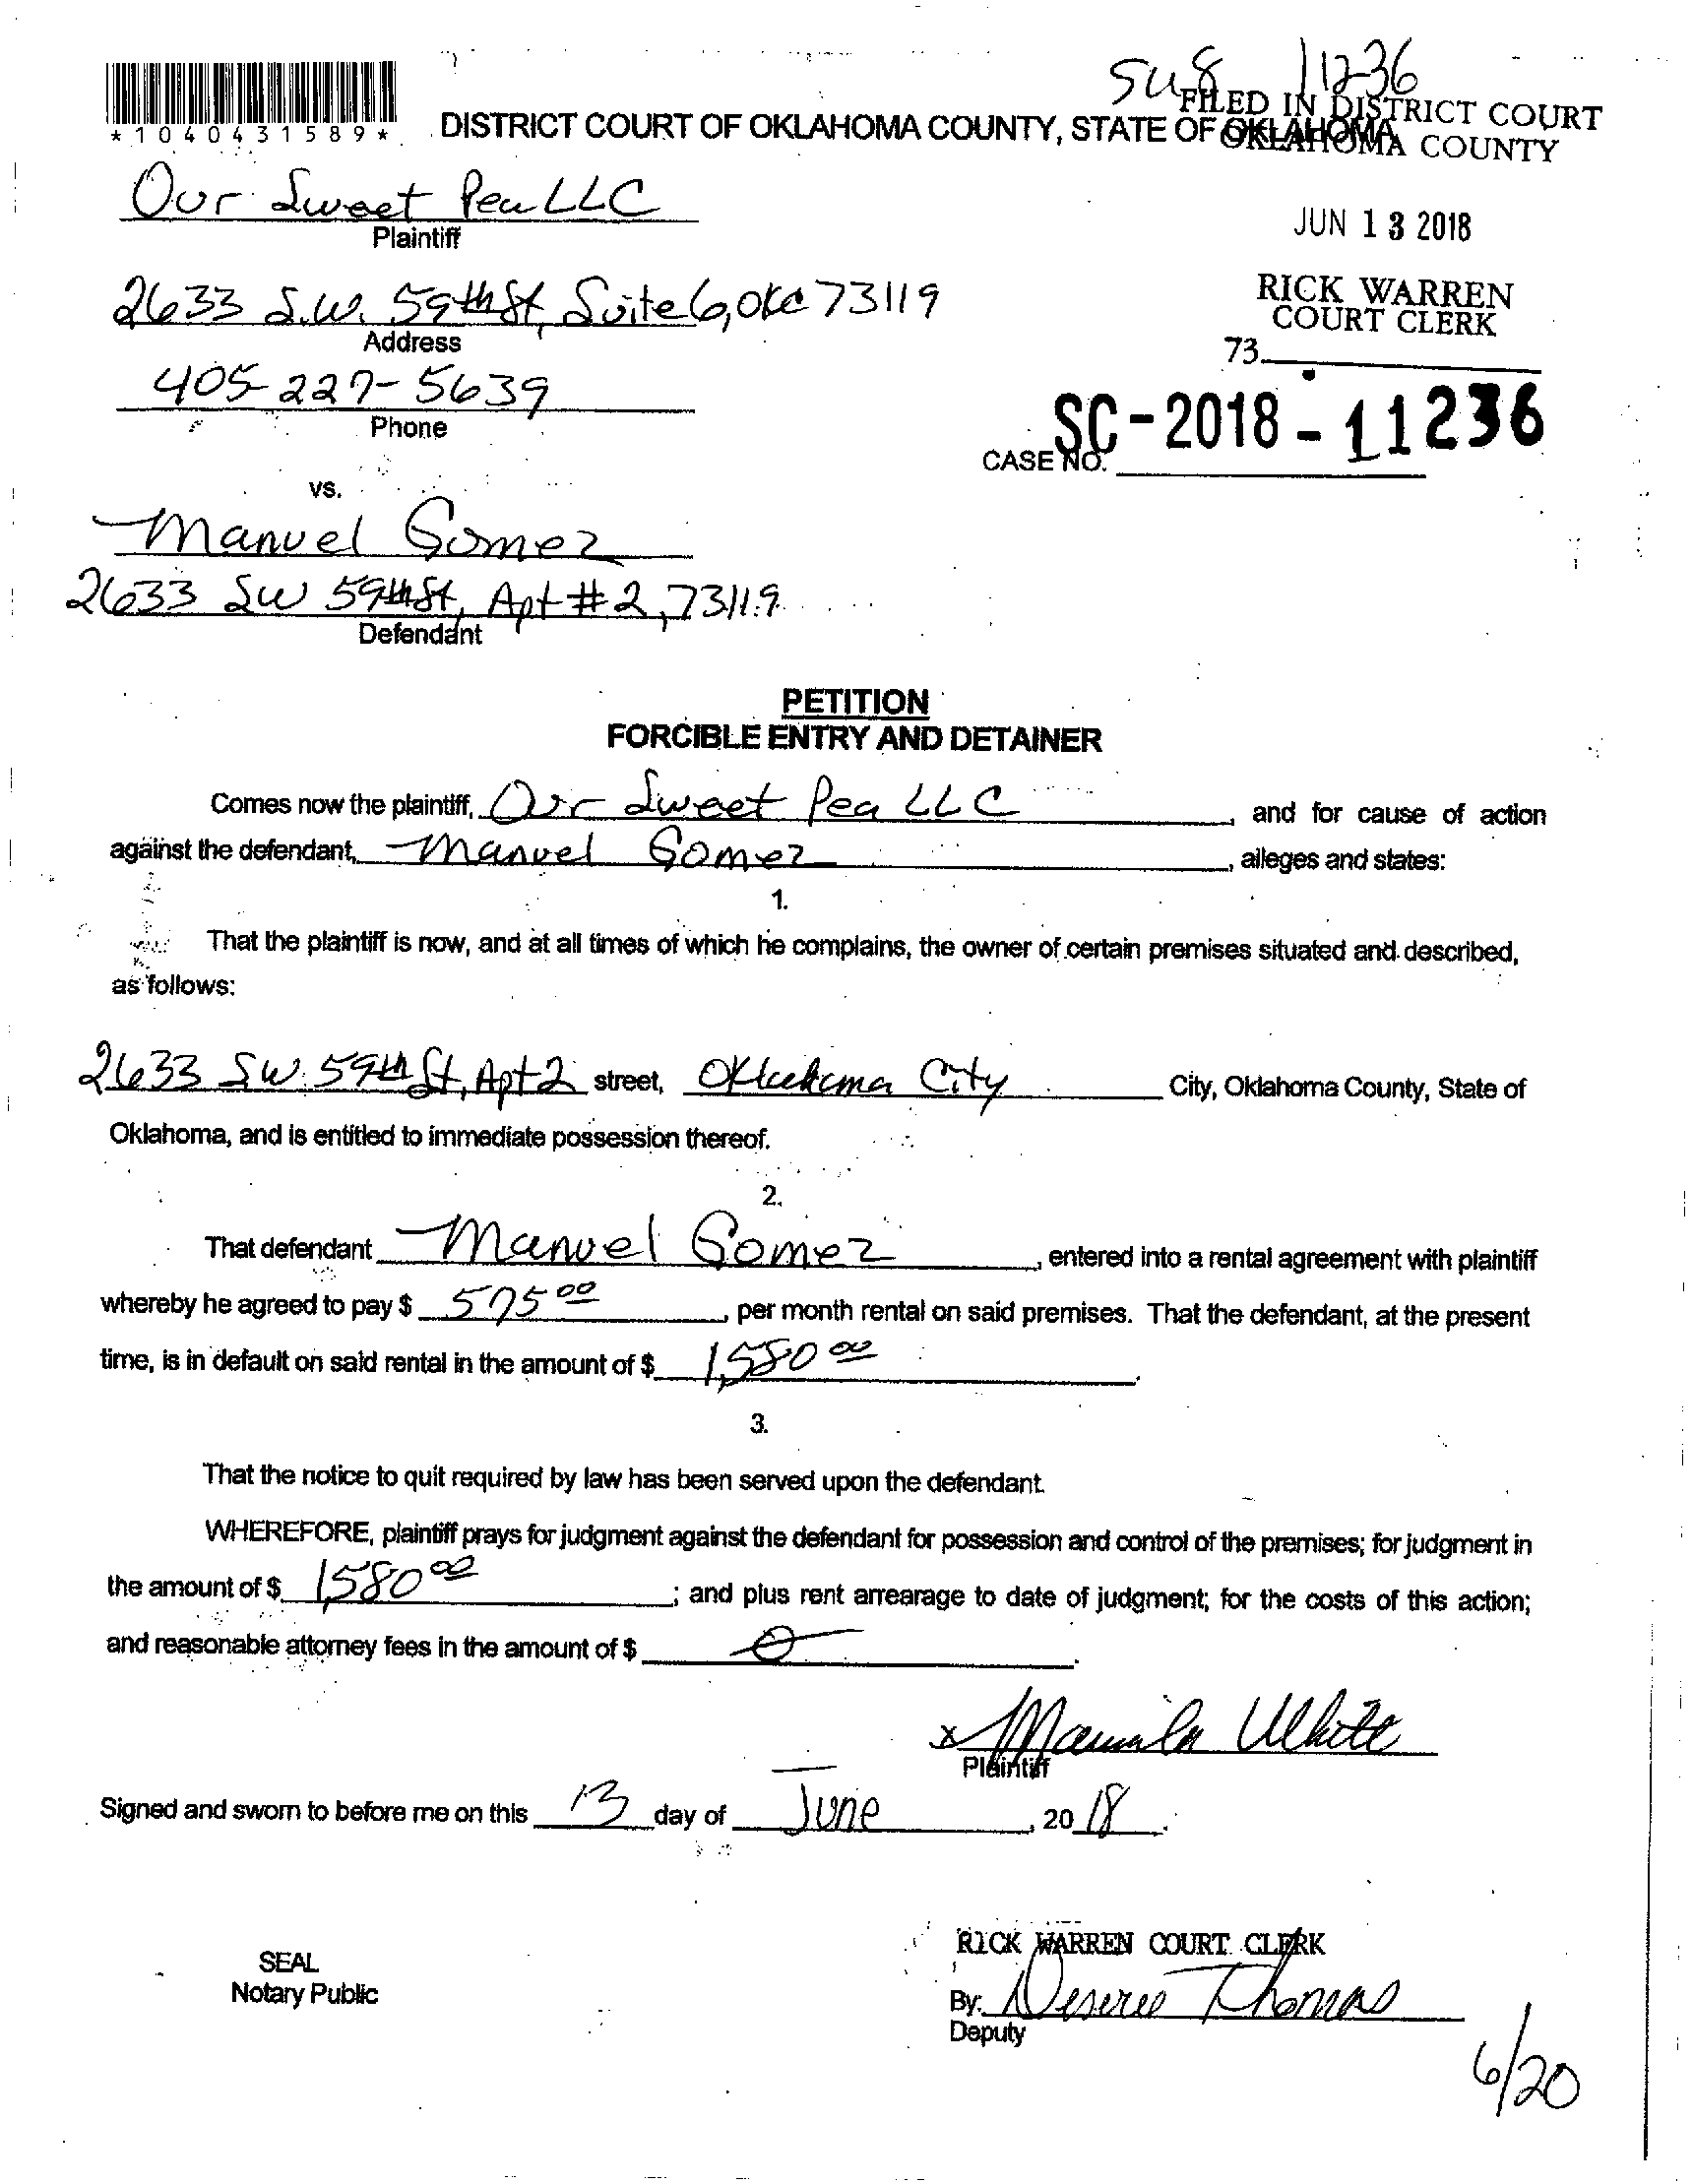 FILED IN DISTRICT COURT
*1040431589*
DISTRICT COURT OF OKLAHOMA COUNTY, STATE OF OKLAHOMA
OKLAHOMA COUNTY
Our Sweet Pea LLC
Plaintiff
JUN 13 2018
2633 S.W. 59th St, Suite 6, OKC 73119
Address
RICK WARREN
COURT CLERK
73
405-227-5639
Phone
SC-2018-11236
CASE NO.
vs.
Manuel Gomez
2633 SW 59th St, Apt #2, 73119
Defendant
PETITION
FORCIBLE ENTRY AND DETAINER
Comes now the plaintiff, Our Sweet Pea LLC, and for cause of action
against the defendant, Manuel Gomez, alleges and states:
1.
That the plaintiff is now, and at all times of which he complains, the owner of certain premises situated and described,
as follows:
2633 SW 59th St, Apt 2 street, Oklahoma City City, Oklahoma County, State of
Oklahoma, and is entitled to immediate possession thereof.
2.
That defendant Manuel Gomez, entered into a rental agreement with plaintiff
whereby he agreed to pay $ 575 00, per month rental on said premises. That the defendant, at the present
time, is in default on said rental in the amount of $ 1,580 00.
3.
That the notice to quit required by law has been served upon the defendant.
WHEREFORE, plaintiff prays for judgment against the defendant for possession and control of the premises; for judgment in
the amount of $ 1,580 00; and plus rent arrearage to date of judgment; for the costs of this action;
and reasonable attorney fees in the amount of $ 0.
x White
Plaintiff
Signed and sworn to before me on this 13 day of June, 20 18.
RICK WARREN COURT CLERK
SEAL
Notary Public
By: Deseree Thomas
Deputy
6/20